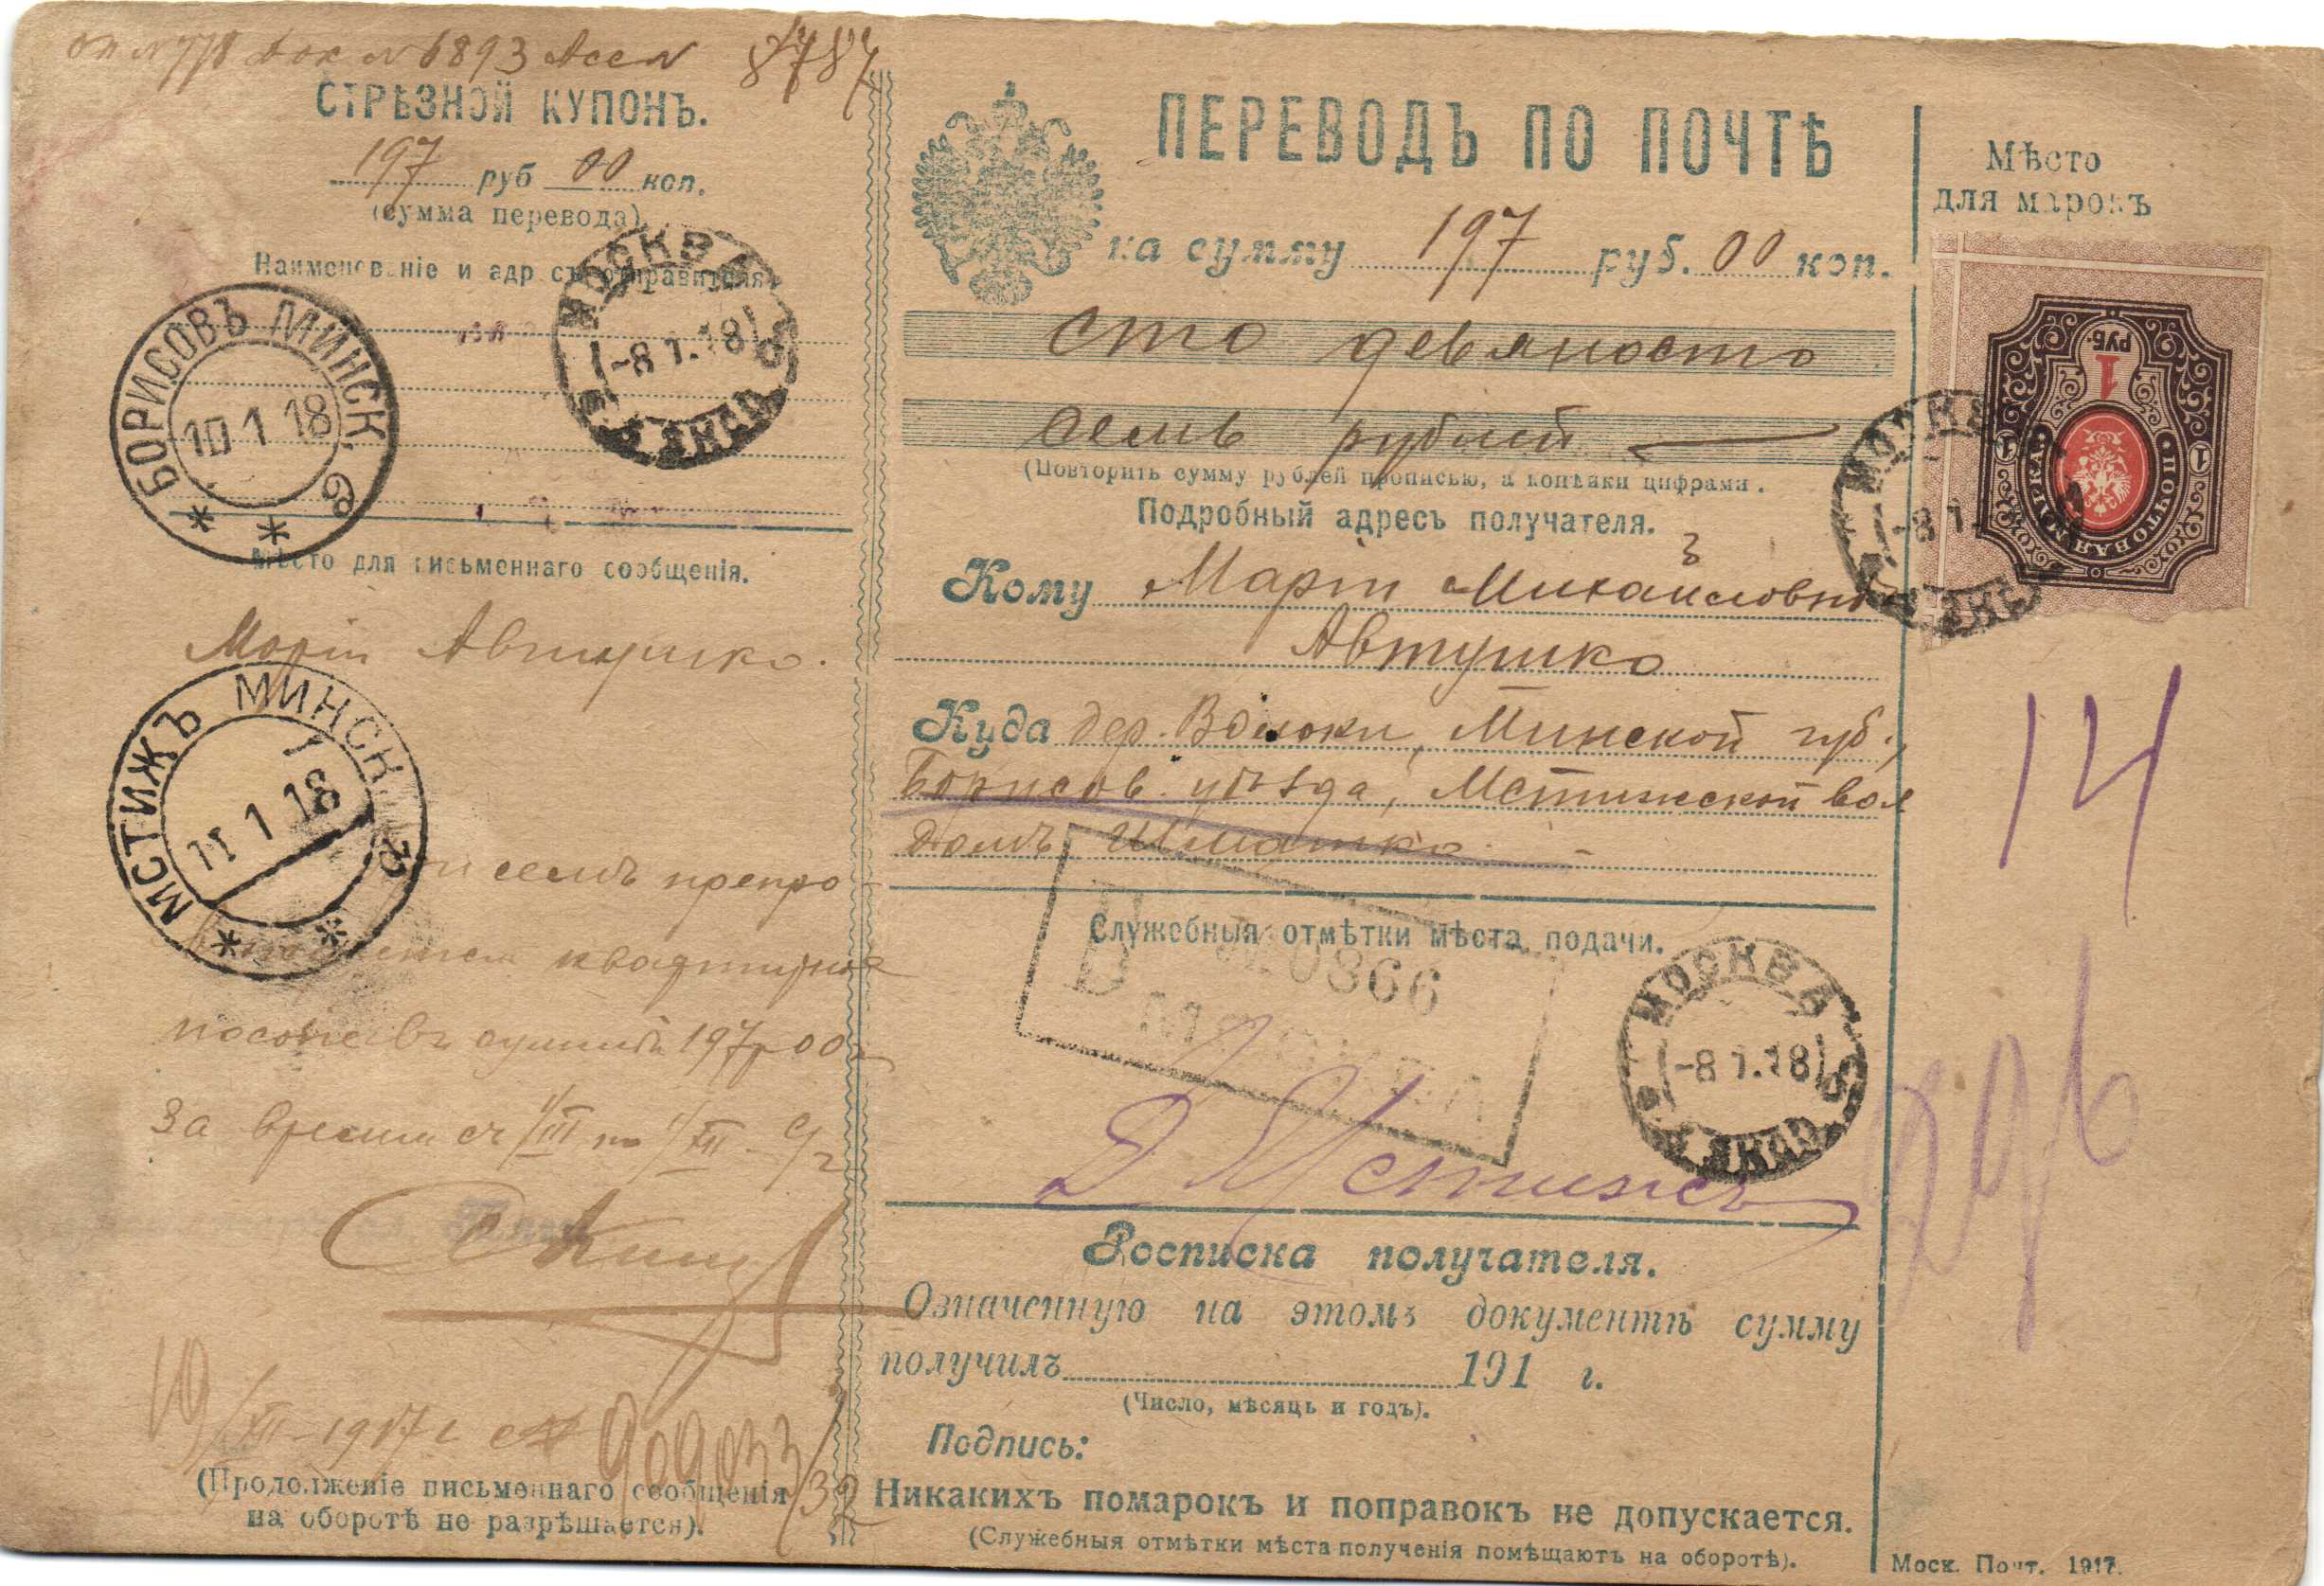 оп N 778 док N 6893 Асен 8787
СТРѢЗНОЙ КУПОНЪ.
197 руб 00 коп.
(сумма перевода)
Наименованіе и адресъ отправителя
МОСКВА
-8 1.18
БОРИСОВЪ МИНСК. 6
10 1 18
Мѣсто для письменнаго сообщенія.
Маріи Автушко.
МСТИЖЪ МИНСК
11 1 18
симъ препро
квартирное
пособіе въ суммѣ 197 р 00 к
За время съ 1/III по 1/XII с/г
19/XII-1917 г
909033
(Продолженіе письменнаго сообщенія
на оборотѣ не разрѣшается).
ПЕРЕВОДЪ ПО ПОЧТѢ
на сумму 197 руб. 00 коп.
сто девяносто
семь рублей
(Повторить сумму рублей прописью, а копѣйки цифрами.
Подробный адресъ получателя.
Кому Маріи Михайловнѣ
Автушко
Куда дер. Волоки, Минской губ.,
Борисов. уѣзда, Мстижской вол
домъ
Служебныя отмѣтки мѣста подачи.
В № 0366
МОСКВА
МОСКВА
-8 1.18
Мстижъ
Росписка получателя.
Означенную на этомъ документѣ сумму
получилъ 191 г.
(Число, мѣсяцъ и годъ).
Подпись:
Никакихъ помарокъ и поправокъ не допускается.
(Служебныя отмѣтки мѣста полученія помѣщаютъ на оборотѣ).
Мѣсто
для марокъ
1
РУБ.
ПОЧТОВАЯ МАРКА
МОСКВА
-8 1.
14
Моск. Почт. 1917.